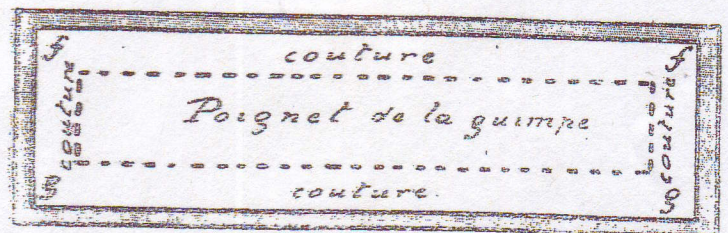 couture
couture
Poignet de la guimpe
couture
couture.